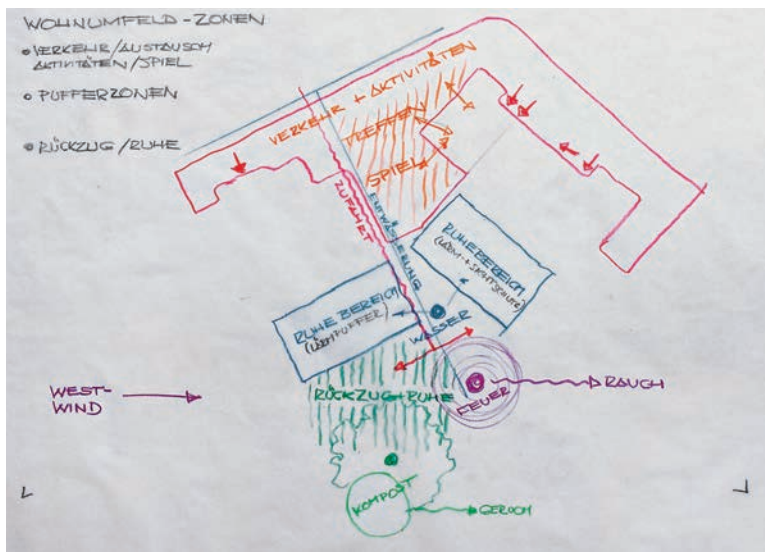 WOHNUMFELD-ZONEN
VERKEHR/AUSTAUSCH
AKTIVITÄTEN/SPIEL
PUFFERZONEN
RÜCKZUG/RUHE
VERKEHR + AKTIVITÄTEN
TREFFEN
SPIEL
ZUFAHRT
ENTWÄSSERUNG
RUHEBEREICH
(LÄRM-+SICHTSCHUTZ)
RUHEBEREICH
(LÄRMPUFFER)
WASSER
WEST-
WIND
RÜCKZUG+RUHE
FEUER
RAUCH
KOMPOST
GERUCH